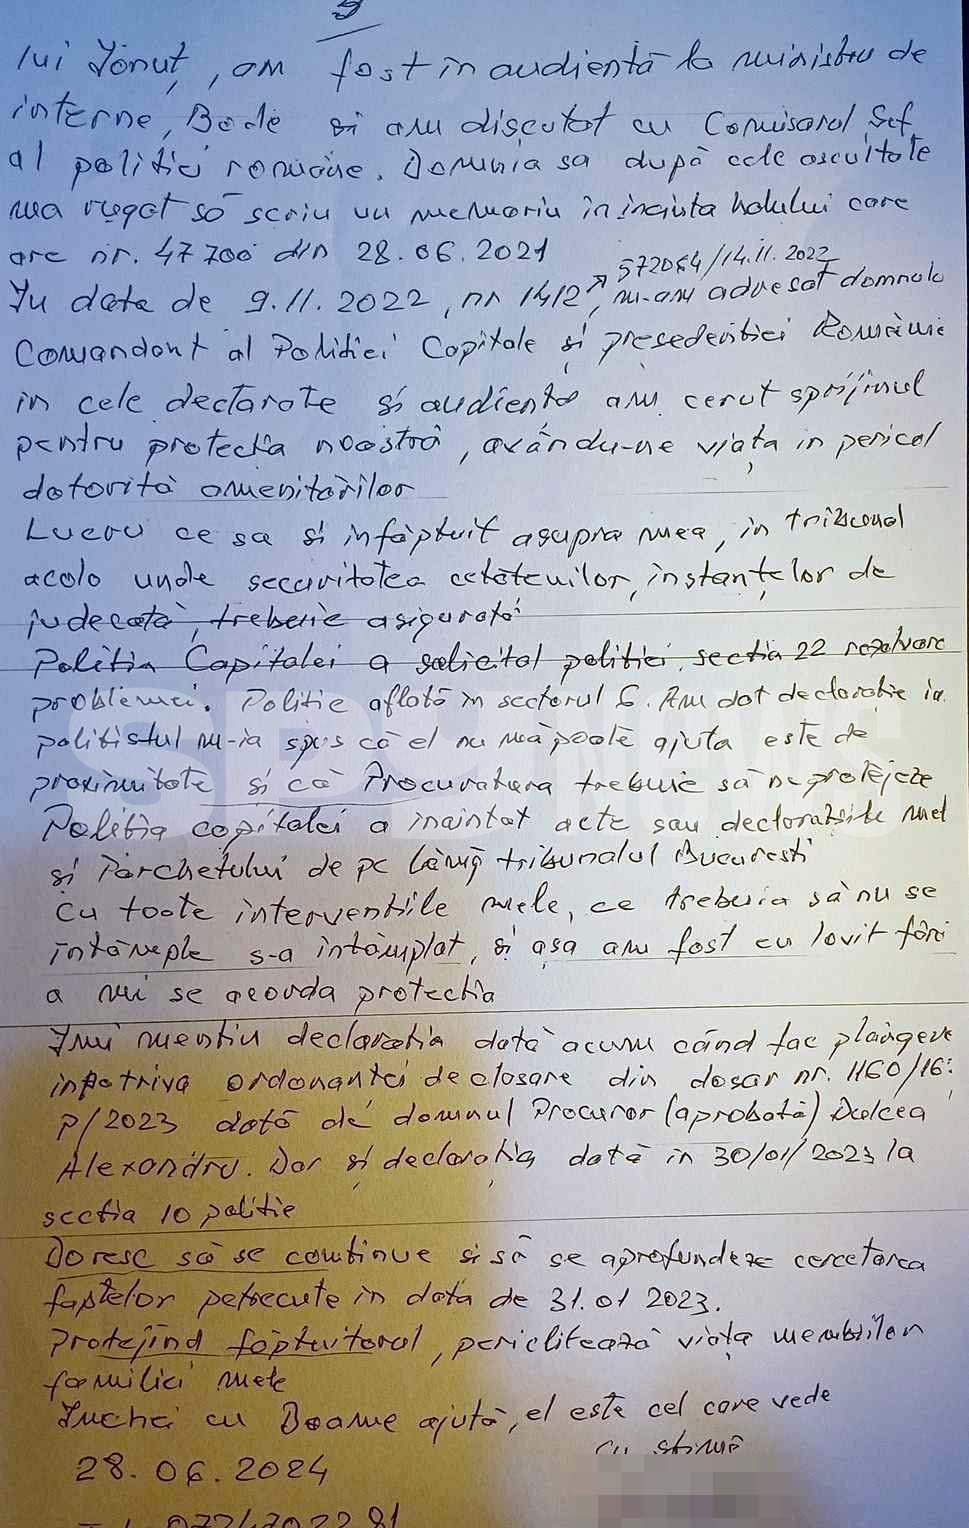 9
lui Ionuț, am fost in audiență la ministru de
interne, Bode și am discutat cu Comisarul Șef
al poliției române. Domnia sa după cele ascultate
mea rugat să scriu un memoriu în incinta holului care
are nr. 47700 din 28.06.2021
572064/14.11.2022
In data de 9.11.2022, nr 1412, m-am adresat domnului
Comandant al Poliției Capitale și presedentiei României
in cele declarate și audiență am cerut sprijinul
pentru protecția noastră, avându-ne viața in pericol
datorită amenitărilor
Lucru ce sa și infăptuit asupra mea, in tribunal
acolo unde securitatea cetătenilor, instanțelor de
judecată, trebuie asigurată
Politia Capitalei a solicitat politiei sectia 22 rezolvare
problemei. Politie aflată in sectorul 6. Am dat declaratie iar
politistul mi-ia spus că el nu mă poate ajuta este de
proximitate și că Procuratura trebuie să ne protejeze
Politia capitalei a inaintat acte sau declaratiile mele
și Parchetului de pe lângă tribunalul Bucuresti
Cu toate interventiile mele, ce trebuia să nu se
întâmple s-a întâmplat, și așa am fost eu lovit fără
a mi se acorda protectia
Imi mentin declaratia dată acum când fac plângere
impotriva ordonantei de closare din dosar nr. 1160/16:
P/2023 dată de domnul Procuror (aprobată) Dulcea
Alexandru. Dar și declaratia dată in 30/01/2023 la
sectia 10 politie
Doresc să se continue și să se aprofundeze cercetarea
faptelor petrecute in data de 31.01 2023.
Protejind făptuitorul, periclitează viața membrilor
familiei mele
Inchei cu Doamne ajută, el este cel care vede
cu stimă
28.06.2024